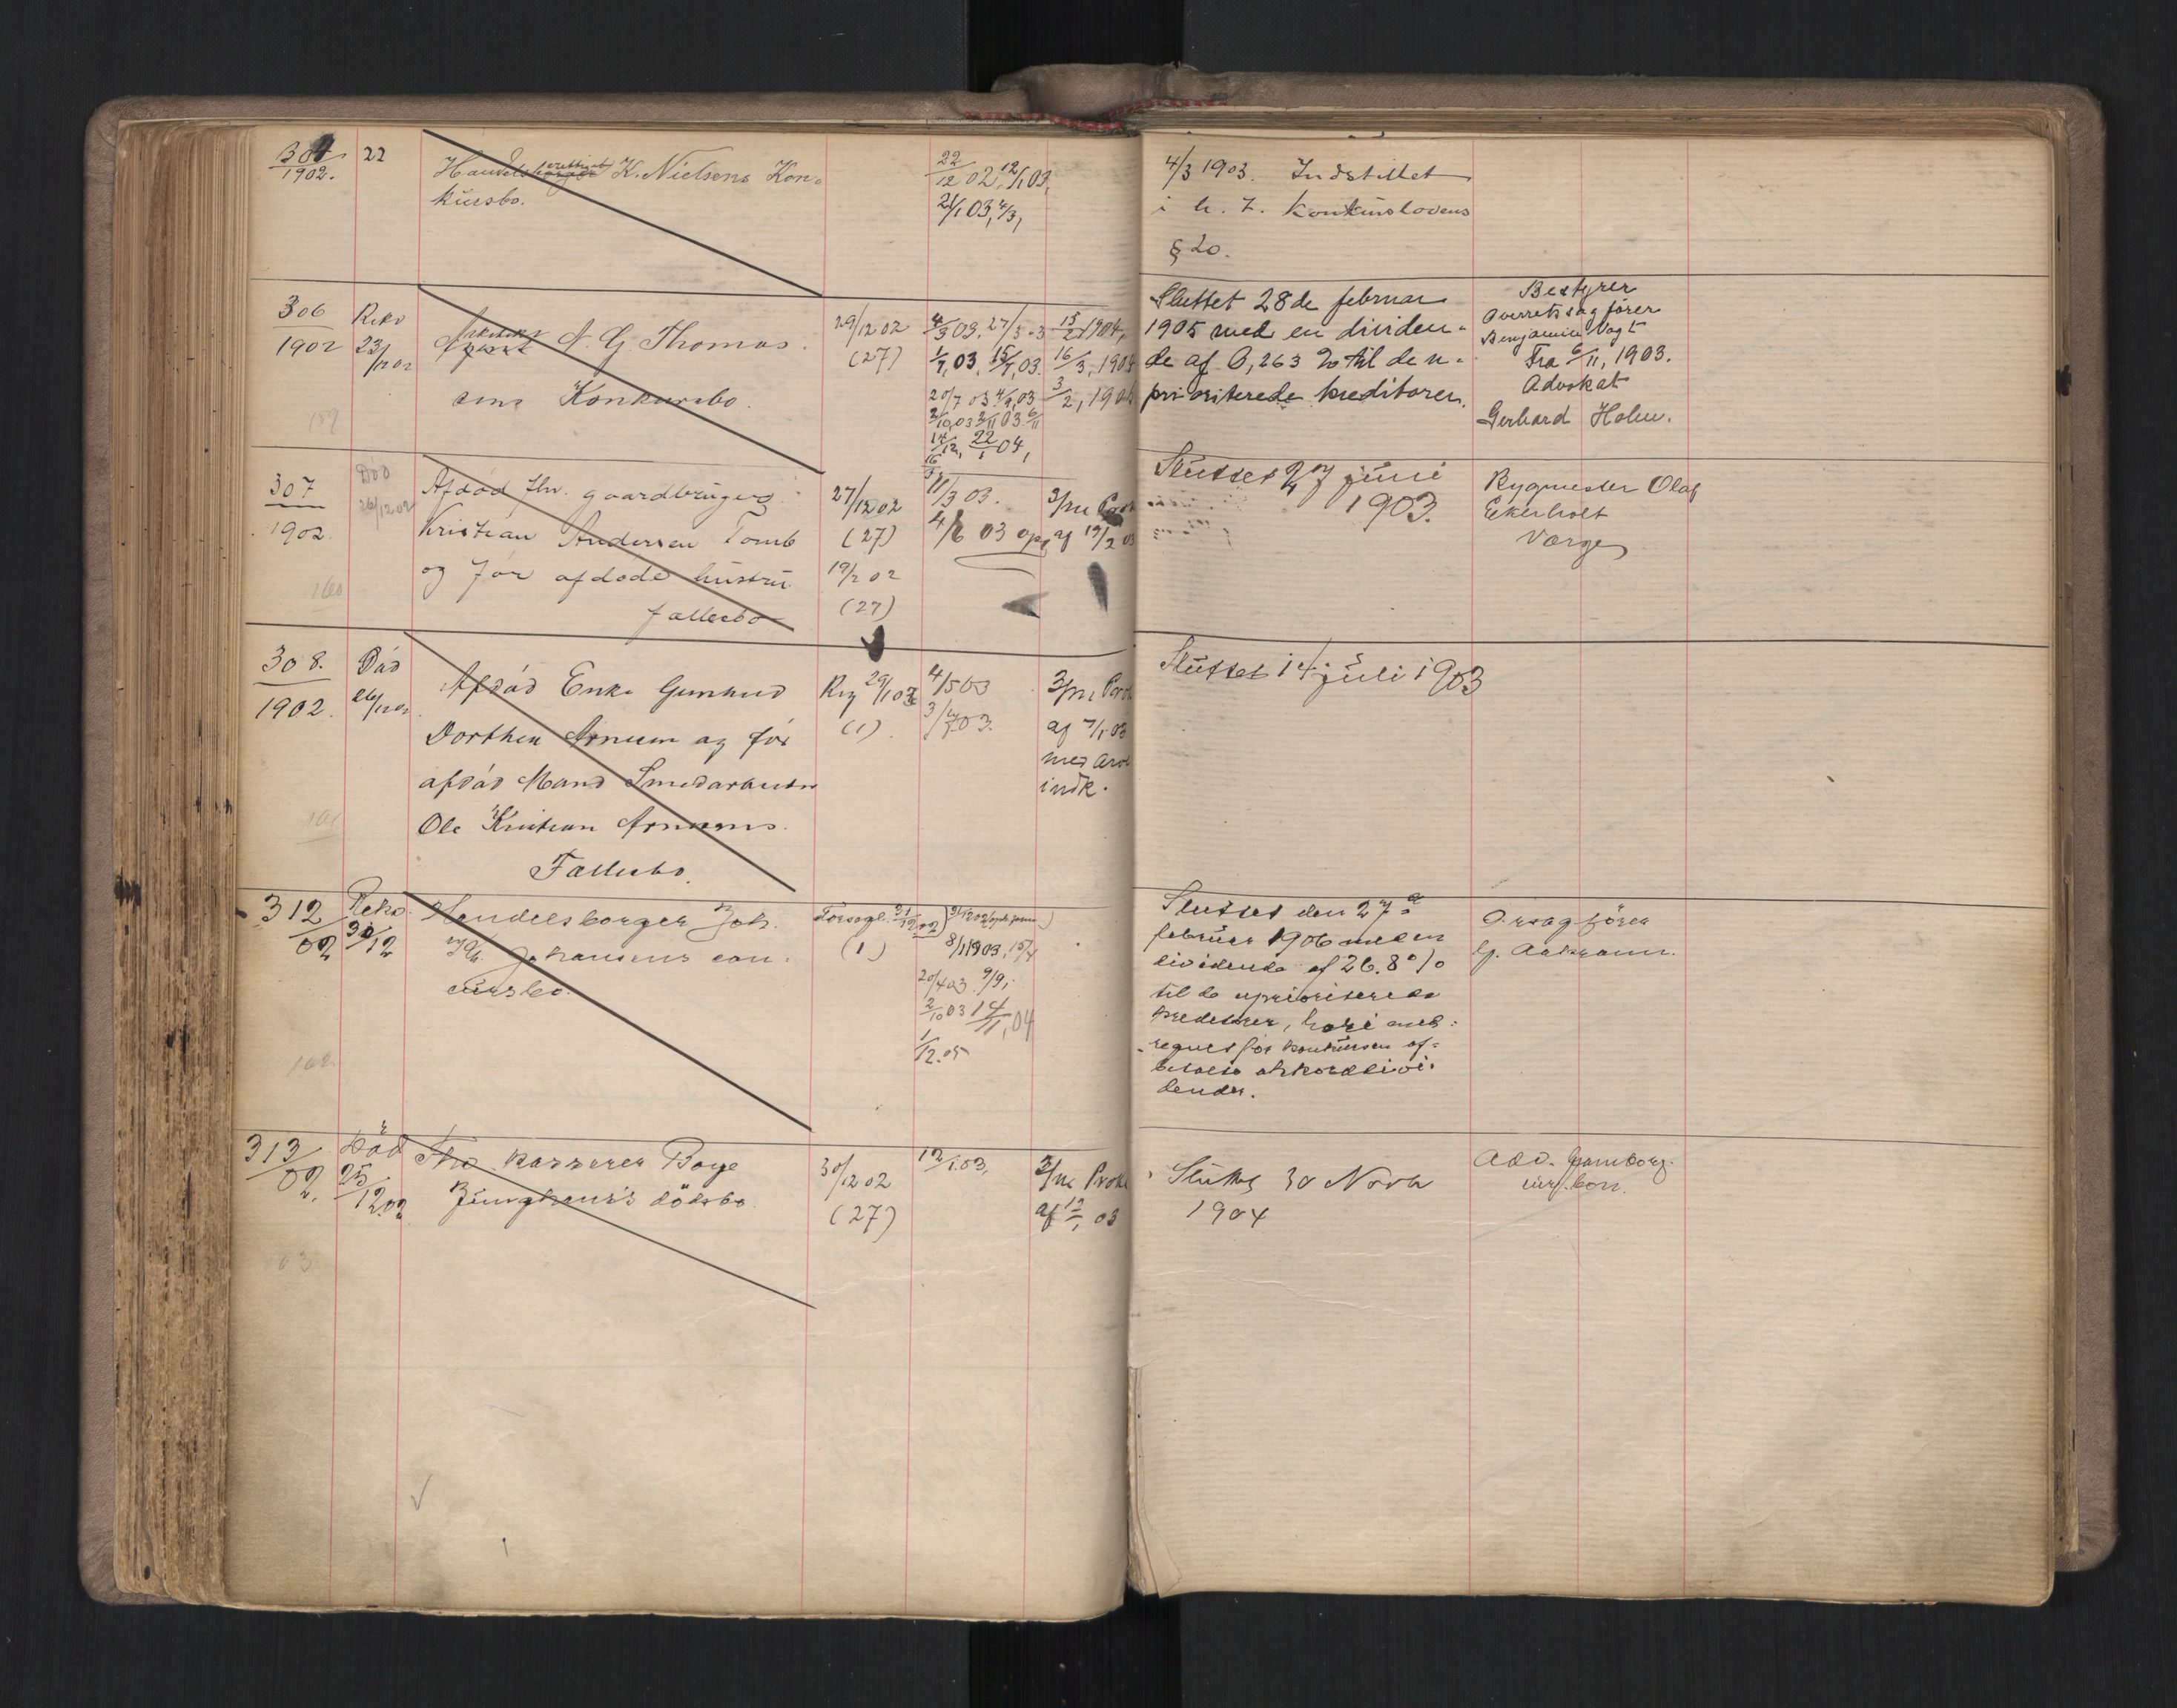 1902.
22
Handelsborger K. Nielsens Kon-
kursbo.
22/12 02, 12/1 03,
21/1 03, 4/3,
4/3 1903. Indstillet
i h. t. konkurslovens
§ 20.
306
1902
Reko
23/12 02
Arkitekt A. G. Thomas
sens Konkursbo.
159
29/12 02
(27)
4/3 03, 27/5 03
1/7, 03, 15/7, 03.
16/3, 1904
3/2, 190
Sluttet 28de februar
1905 med en dividen-
de af 0,263 % til de u-
prioriterede kreditorer.
Bestyrer
Overretssagfører
Benjamin Vogt
Fra 6/11, 1903.
Advokat
Gerhard Holm.
307
1902
Död
26/12 02
Afdöd fhv. gaardbrugers
Kristian Andersen Tomb
og för afdöde hustru
fællesbo
160
27/12 02
(27)
19/2 02
(27)
11/3 03.
4/6 03
af 19/2 03
Sluttet 27 juni
1903.
Bygmester Olaf
Ekerholt
Værge
308.
1902.
Död
26/12 02
Afdöd Enke Gunhild
Dorthea Arnesen og för
afdöd Mand Smedarbeider
Ole Kristian Arnesens
Fællesbo.
161
Reg 29/1 03
(1)
4/5 03
af 7/1 03
med
indk.
Sluttet 14 juli 1903
312
02
Reko.
30/12
Handelsborger Joh.
Johansens con-
cursbo.
162
Forsegl. 31/12 02
(1)
8/1 1903,
20/4 03. 9/9,
2/10 03 14/11, 04
1/12. 05
Sluttet den 27de
februar 1906 med en
dividende af 26.8 %
til de uprioriterede
kreditorer, heri med-
regnet för konkursen af-
betalte akkorddivi-
dender.
O.rsagförer
313
02.
Död
25/12 02
Fhv. kasserer Boye
Junghans's dödsbo.
30/12 02
(27)
12/1 03,
af 12/1 03
Sluttet 30 Novbr
1904
Adv.